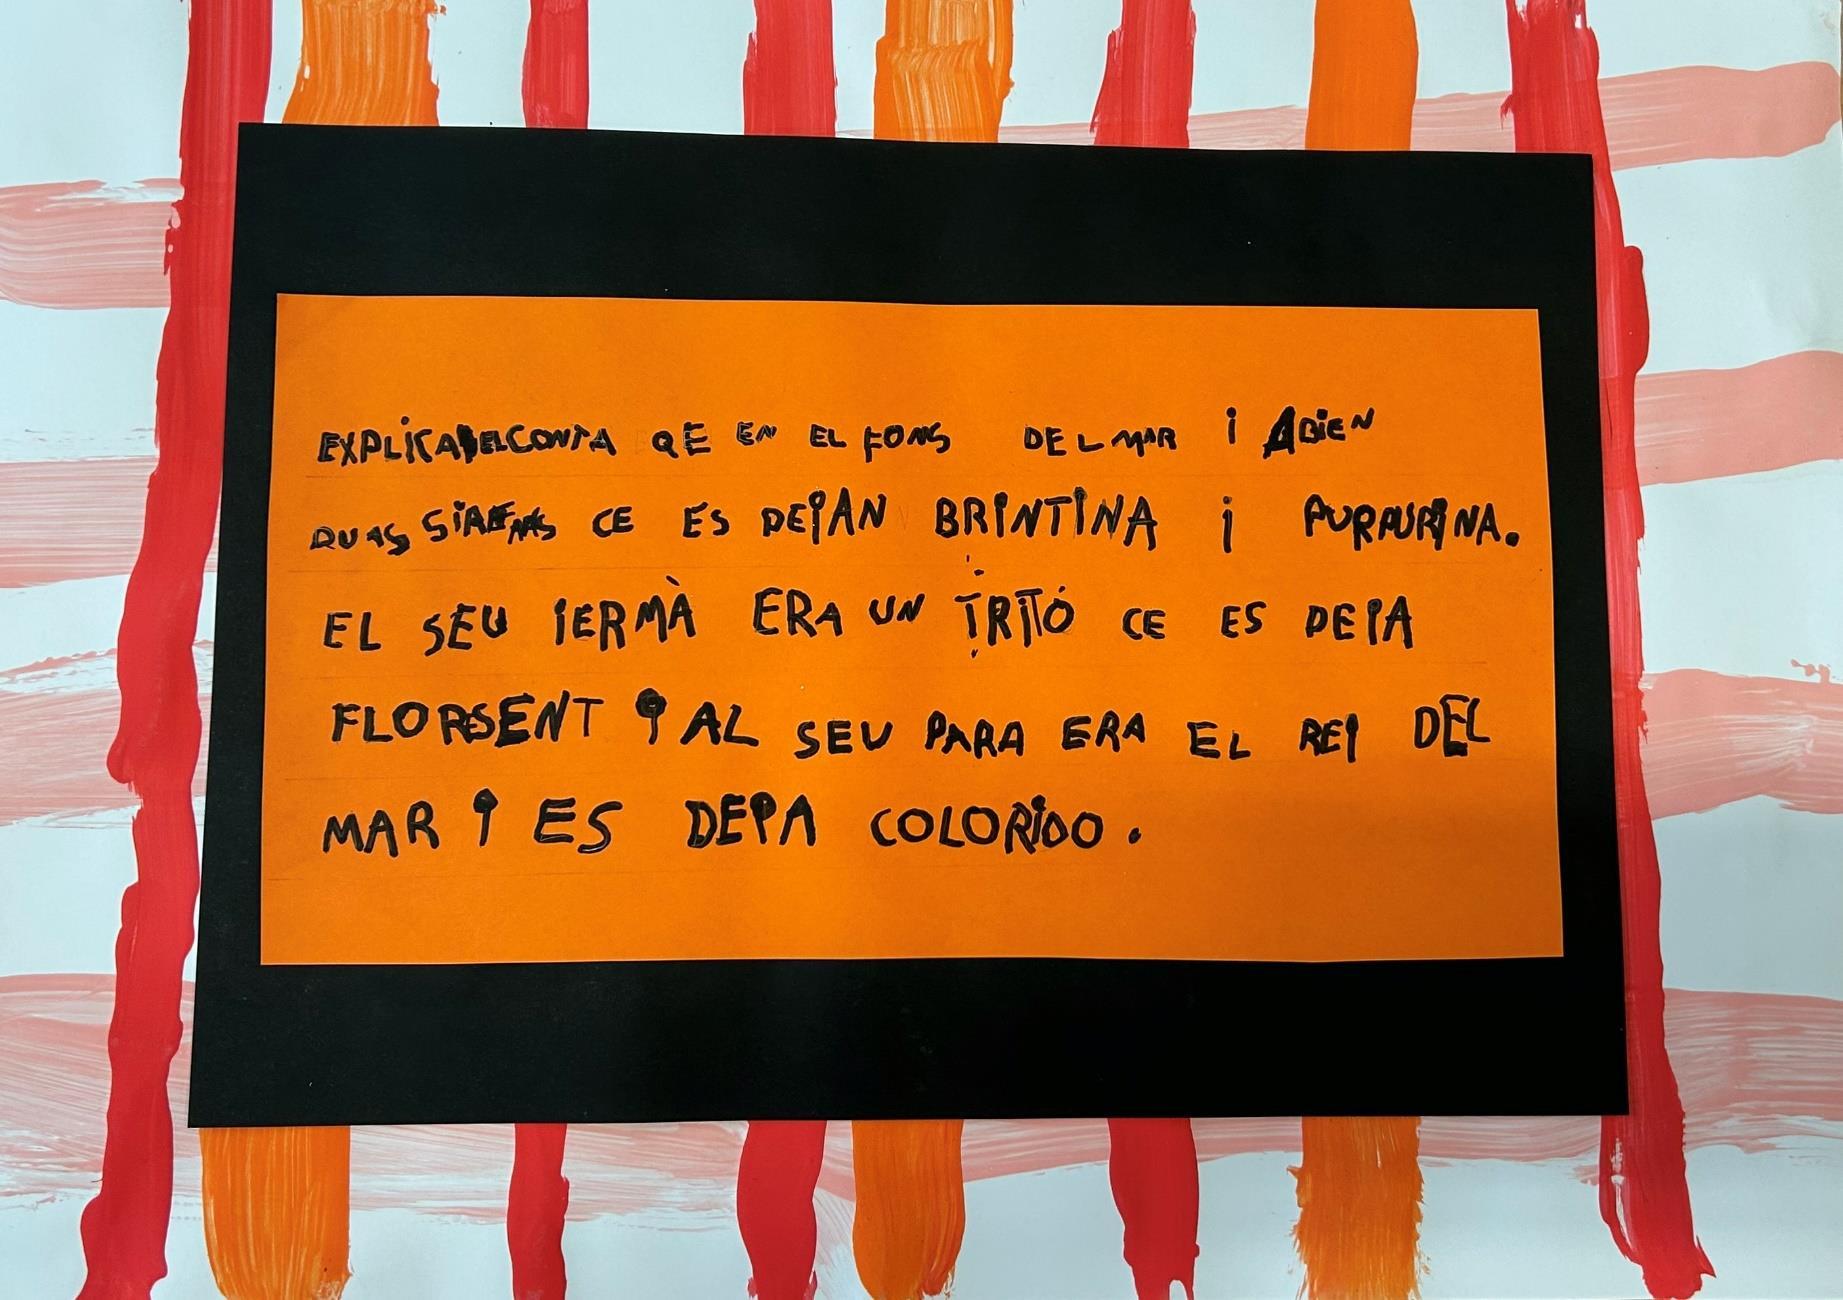 EXPLICA EL CONTA QE EN EL FONS DEL MAR I ABIEN
DUAS SIRENAS CE ES DEIAN BRINTINA I PURPURINA.
EL SEU IERMÀ ERA UN TRITÓ CE ES DEIA
FLORSENT I AL SEU PARA ERA EL REI DEL
MAR I ES DEIA COLORIDO.